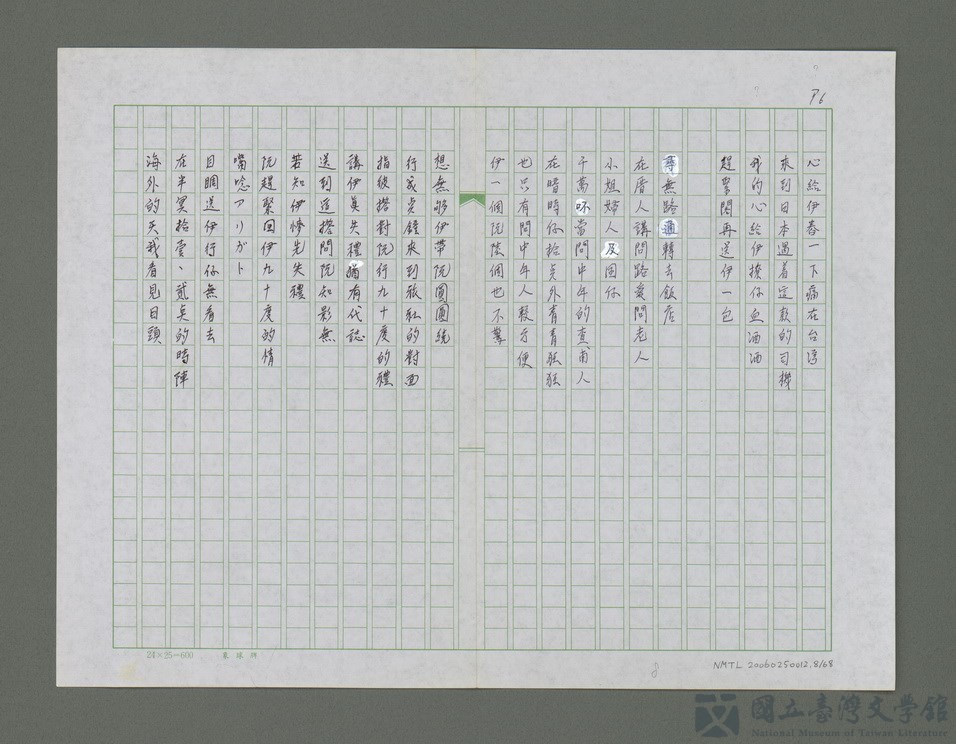 P6
心給伊舂一下痛在台湾
來到日本遇着這款的司機
我的心給伊擽仔血洒洒
趕緊閣再送伊一包
尋無路通轉去飯店
在厝人講問路愛問老人
小姐婦人人及囝仔
千萬呣當問中年的查甫人
在時時仔拾点外青青狂狂
也只有問中年人較方便
伊一個阮陸個也不驚
想無够伊帶阮圓圓繞
行幾点鐘來到旅社的對面
指後擔對阮行九十度的禮
講伊真失禮猶有代誌
送到這擔問阮知影無
若知伊慘先失禮
阮趕緊回伊九十度的情
嘴唸アリガト
目睭送伊行仔無看去
在半冥拾壹、貳点的時陣
海外的天我看見日頭
24×25=600
NMTL 20060250012.8/68
8
國立臺灣文學館
National Museum of Taiwan Literature